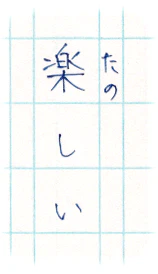 楽しい
たの